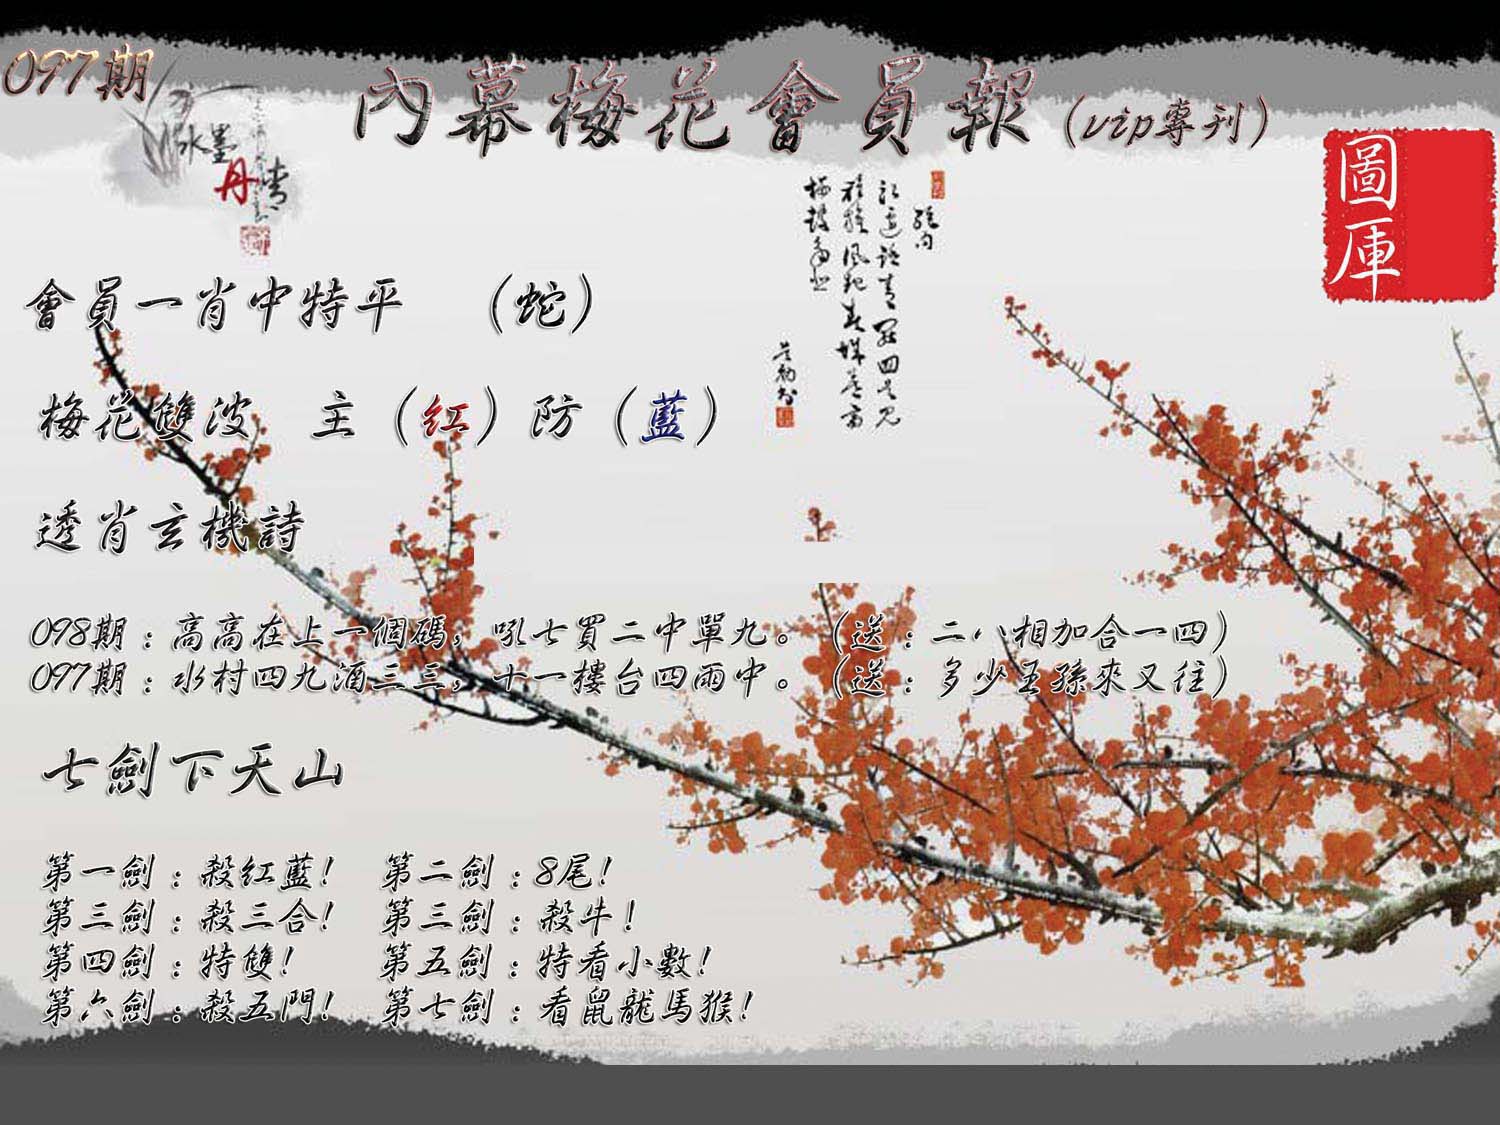 097期
內幕梅花會員報(vip專刊)
水墨
丹青
圖庫
會員一肖中特平 （蛇）
梅花雙波 主（紅）防（藍）
透肖玄機詩
098期：高高在上一個碼，吼七買二中單九。（送：二八相加合一四）
097期：水村四九酒三三，十一樓台四雨中。（送：多少王孫來又往）
七劍下天山
第一劍：殺紅藍! 第二劍：8尾!
第三劍：殺三合! 第三劍：殺牛！
第四劍：特雙! 第五劍：特看小數!
第六劍：殺五門! 第七劍：看鼠龍馬猴!